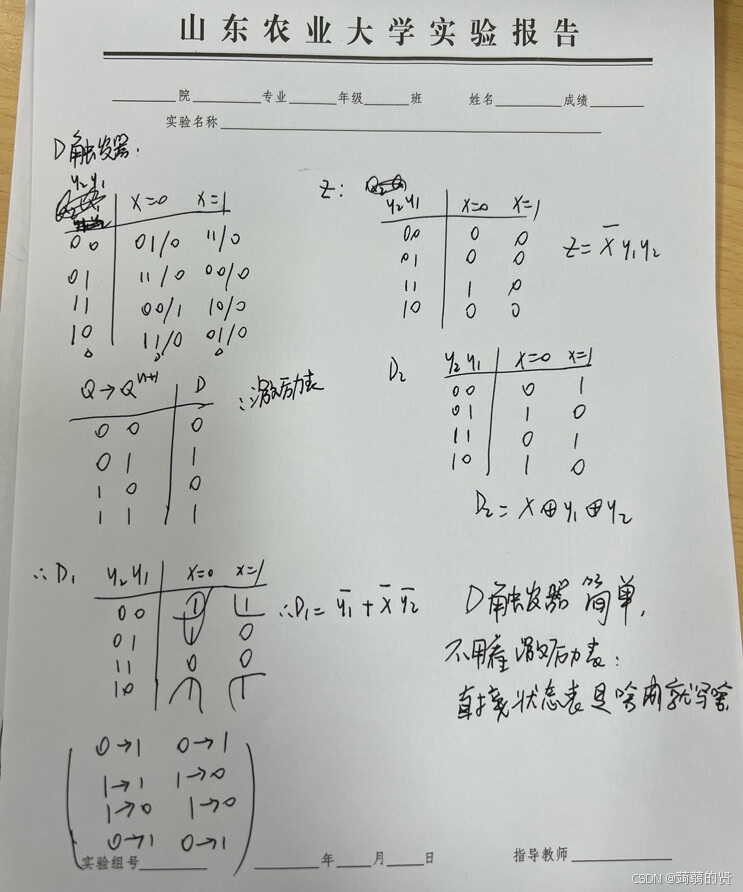 山东农业大学实验报告
院 专业 年级 班 姓名 成绩
实验名称
D触发器.
y₂y₁ X=0 X=1
00 01/0 11/0
01 11/0 00/0
11 00/1 10/0
10 11/0 01/0
Z:
y₂y₁ X=0 X=1
00 0 0
01 0 0
11 1 0
10 0 0
Z = X̅ y₁y₂
Q→Qⁿ⁺¹ D
0 0 0
0 1 1
1 0 0
1 1 1
:激励表
D₂ y₂y₁ X=0 X=1
00 0 1
01 1 0
11 0 1
10 1 0
D₂ = X⊕y₁⊕y₂
∴D₁ y₂y₁ X=0 X=1
00 1 1
01 1 0
11 0 0
10 1 1
∴D₁ = y̅₁ + X̅ y̅₂
D触发器简单,
不用看激励表:
直接状态表是啥就写啥
0→1 0→1
1→1 1→0
1→0 1→0
0→1 0→1
实验组号 年 月 日 指导教师
CSDN @蒟蒻的贤